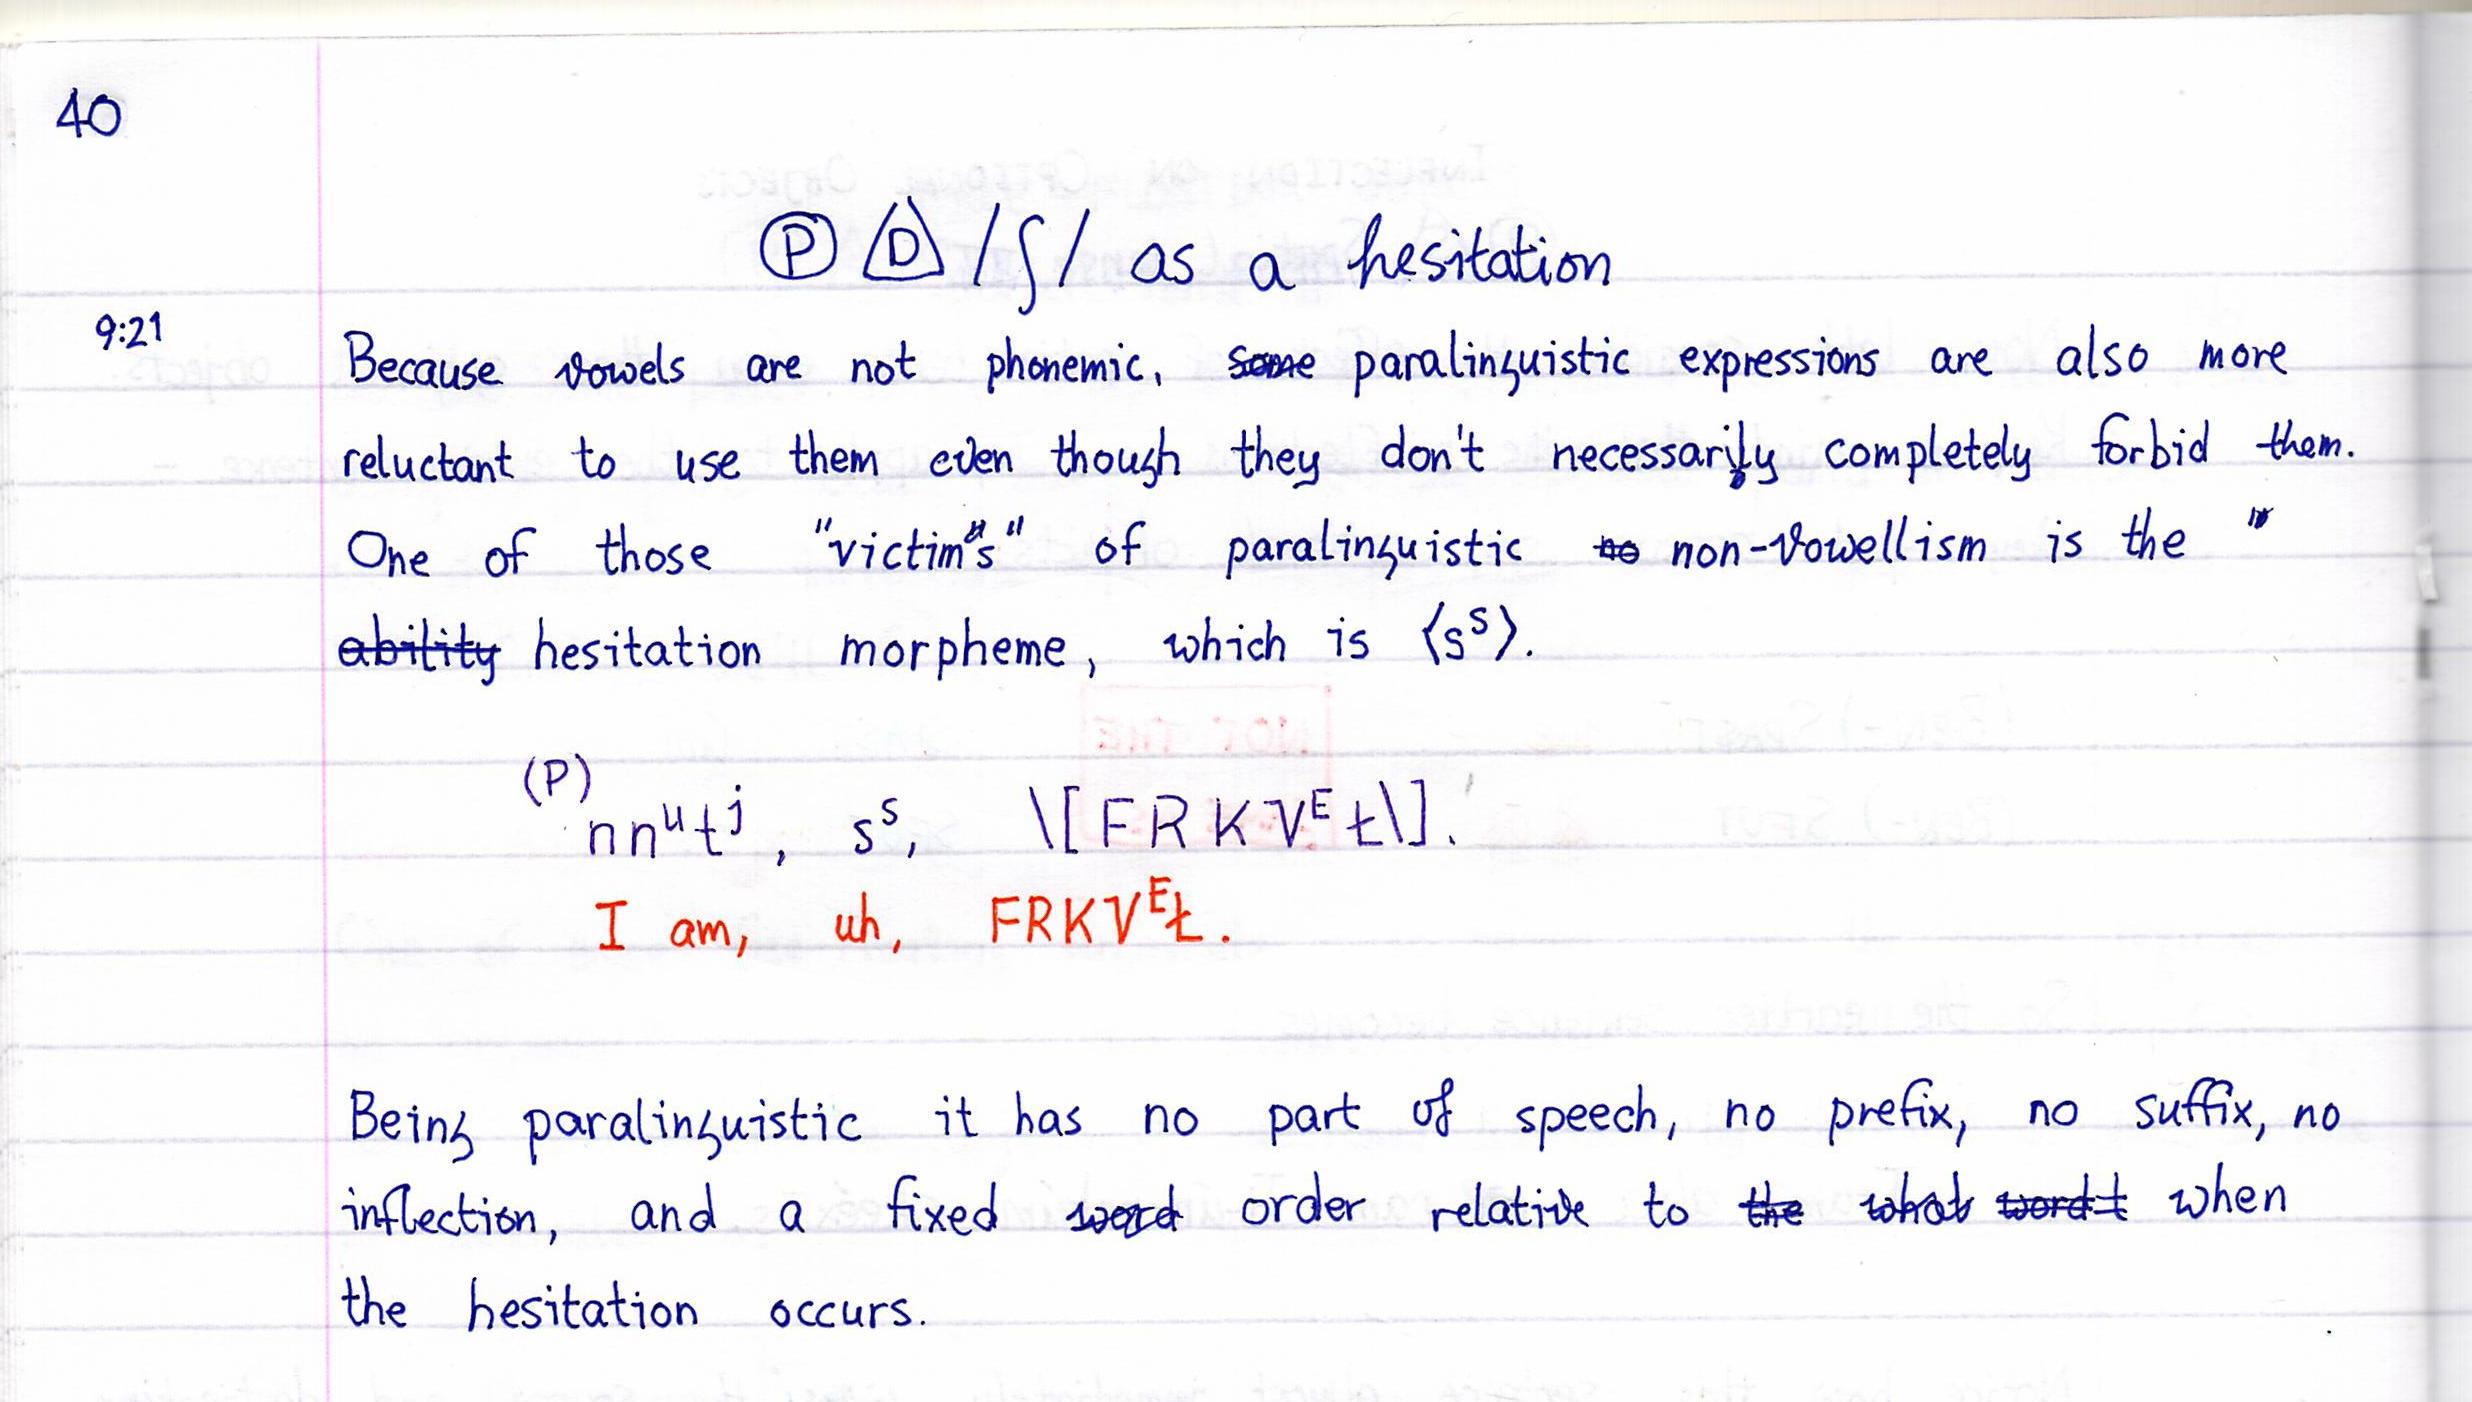 40
Ⓟ D /ʃ/ as a hesitation
9:21
Because vowels are not phonemic, some paralinguistic expressions are also more
reluctant to use them even though they don't necessarily completely forbid them.
One of those "victims" of paralinguistic no non-vowellism is the "
ability hesitation morpheme, which is ⟨sˢ⟩.
(P) nnᵘtʲ, sˢ, \[FRKVᴱŁ\].
I am, uh, FRKVᴱŁ.
Being paralinguistic it has no part of speech, no prefix, no suffix, no
inflection, and a fixed word order relative to the what word t when
the hesitation occurs.